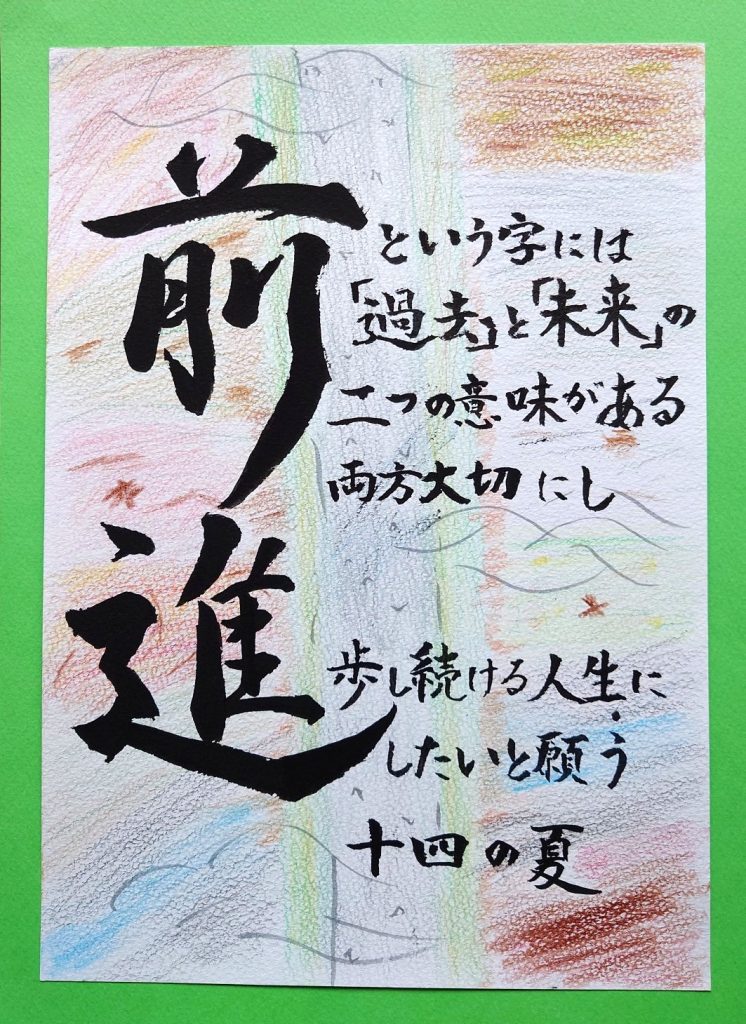 前
という字には
「過去」と「未来」の
二つの意味がある
両方大切にし
進
歩し続ける人生に
したいと願う
十四の夏